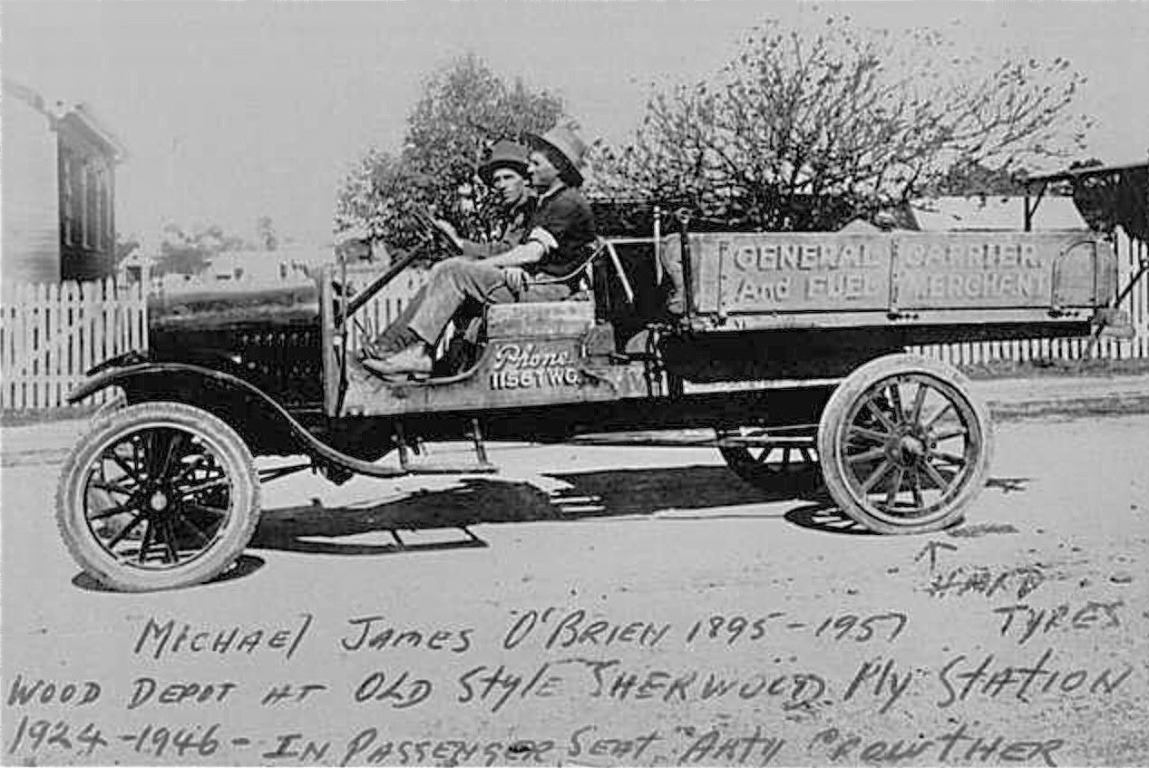 GENERAL CARRIER
And FUEL MERCHENT
Phone
1156TWG.
HARD
TYRES
MICHAEl JAMES O'BRIEN 1895-1957
WOOD DEPOT AT OLD StylE SHERWOOD Rly StATION
1924-1946- IN PASSENGER SEAT "ARTY CROWTHER